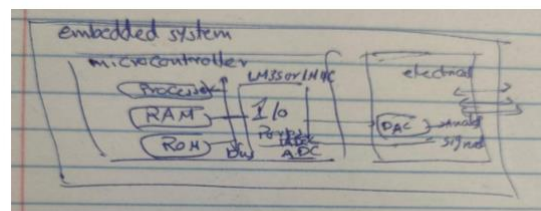 embedded system
microcontroller
Processor
RAM
ROM
Bus
I/o
Ports
ADC
electrical
DAC
signal